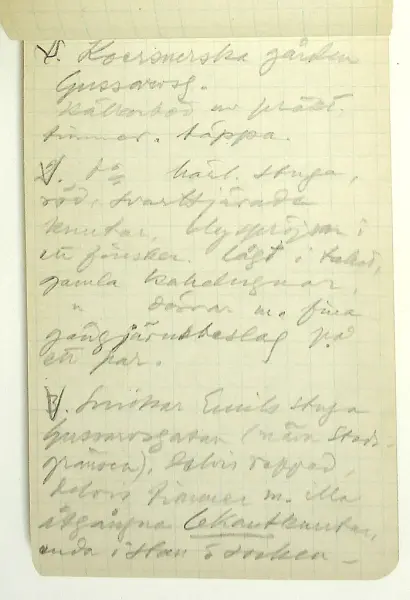 1. Koersnerska gården
Gussarvsg.
Källarbod av präkt.
timmer. täppa.
2. do härl. stuga,
röd, svarttjärade
knutar, blyspröjsar i
ett fönster. lågt i taket,
gamla kakelugnar,
" dörrar m. fina
gångjärnsbeslag på
ett par.
3. Snickar Emils stuga
Gussarvsgatan (nära Stads-
gränsen), delvis rappad,
delvis timmer m. illa
åtgångna 6kantknutar,
enda i stan o socken –